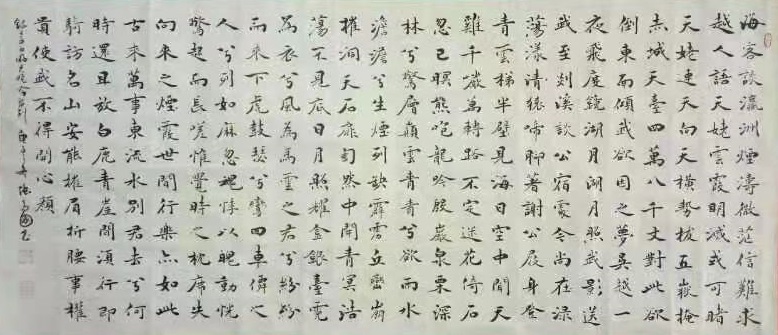 海客談瀛洲煙濤微茫信難求
越人語天姥雲霞明滅或可睹
天姥連天向天橫勢拔五嶽掩
赤城天臺四萬八千丈對此欲
倒東南傾我欲因之夢吳越一
夜飛度鏡湖月湖月照我影送
我至剡溪謝公宿處今尚在淥
蕩漾清猿啼腳著謝公屐身登
青雲梯半壁見海日空中聞天
雞千巖萬轉路不定迷花倚石
忽已暝熊咆龍吟殷巖泉栗深
林兮驚層巔雲青青兮欲雨水
澹澹兮生煙列缺霹靂丘巒崩
摧洞天石扉訇然中開青冥浩
蕩不見底日月照耀金銀臺霓
為衣兮風為馬雲之君兮紛紛
而來下虎鼓瑟兮鸞回車僊之
人兮列如麻忽魂悸以魄動怳
驚起而長嗟惟覺時之枕席失
向來之煙霞世間行樂亦如此
古來萬事東流水別君去兮何
時還且放白鹿青崖間須行即
騎訪名山安能摧眉折腰事權
貴使我不得開心顏